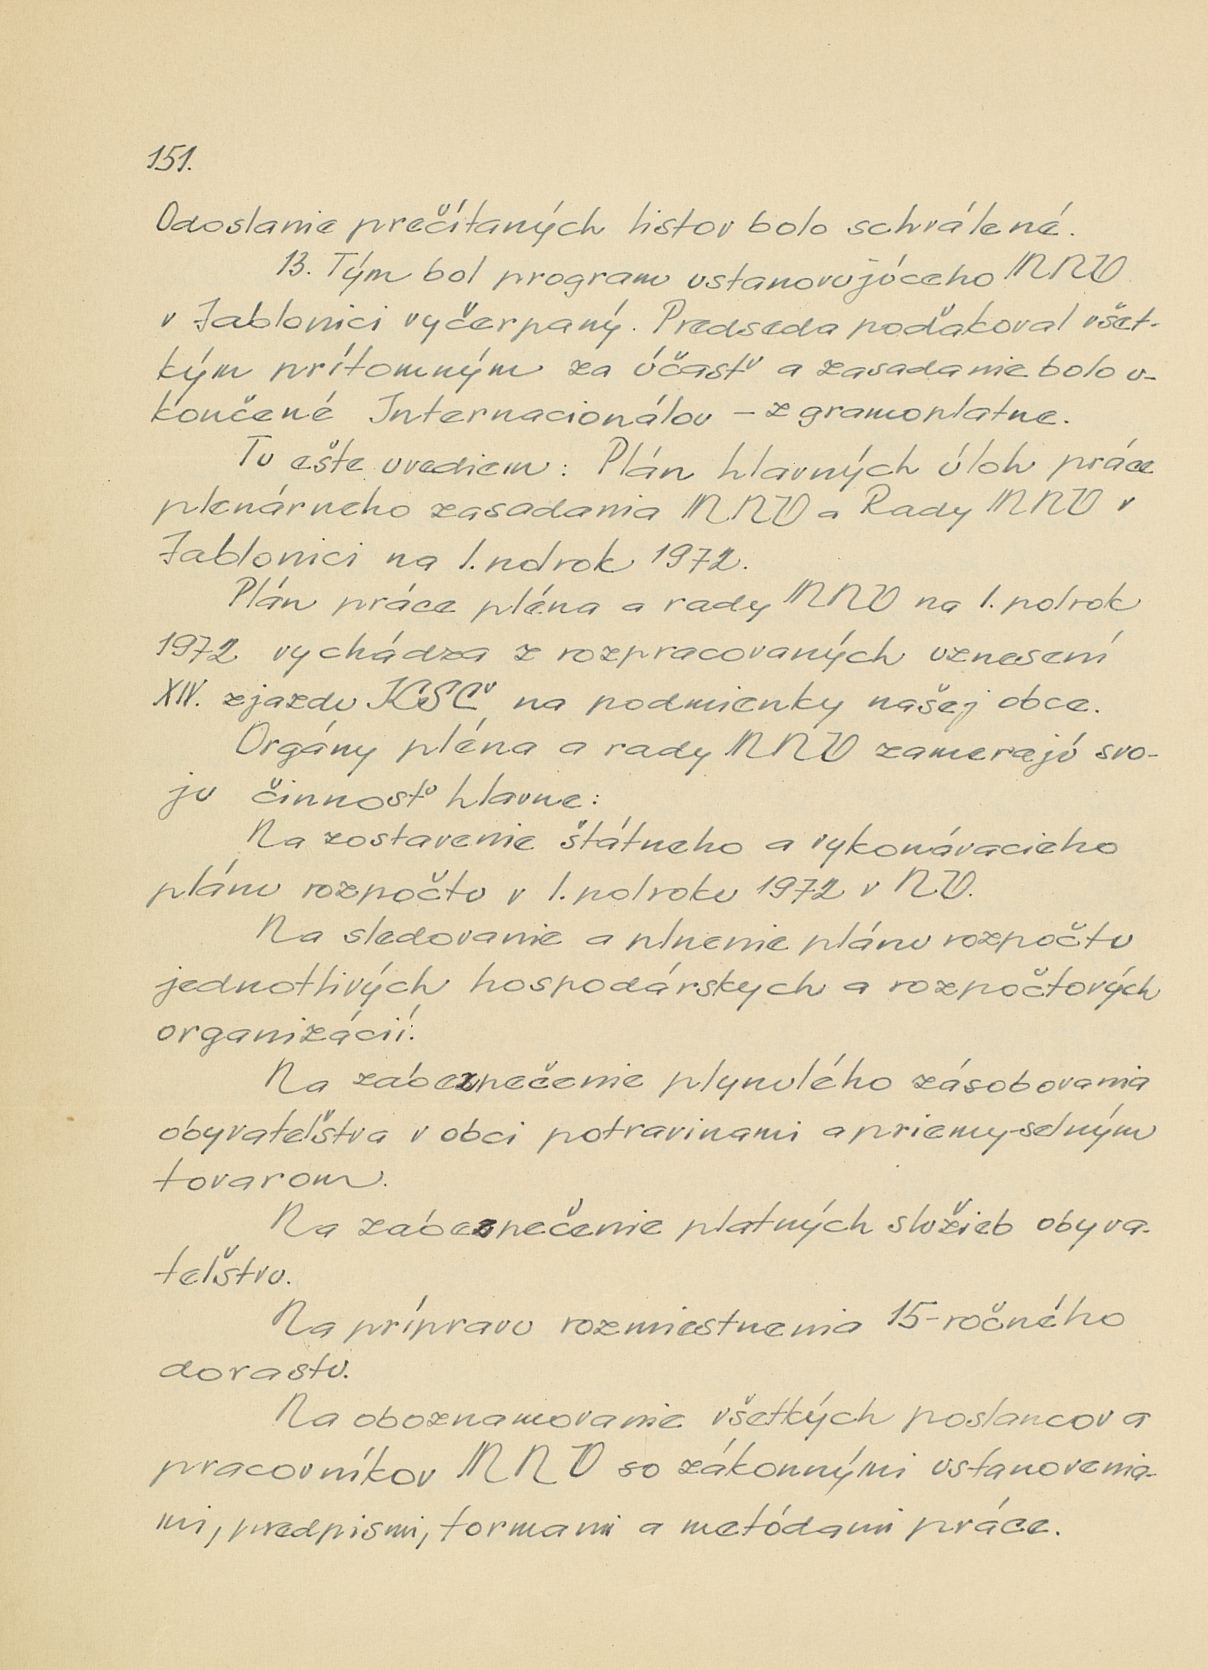 151.
Odoslanie prečítaných listov bolo schválené.
13. Tým bol program ustanovujúceho MNV
v Jablonici vyčerpaný. Predseda poďakoval všet-
kým prítomným za účasť a zasadanie bolo u-
končené Internacionálou – z gramoplatne.
Tu ešte uvediem: Plán hlavných úloh práce
plenárneho zasadania MNV a Rady MNV v
Jablonici na 1. polrok 1972.
Plán práce pléna a rady MNV na 1. polrok
1972 vychádza z rozpracovaných uznesení
XIV. zjazdu KSČ na podmienky našej obce.
Orgány pléna a rady MNV zamerajú svo-
ju činnosť hlavne:
Na zostavenie štátneho a vykonávacieho
plánu rozpočtu v 1. polroku 1972 v NV.
Na sledovanie a plnenie plánu rozpočtu
jednotlivých hospodárskych a rozpočtových
organizácií.
Na zabezpečenie plynulého zásobovania
obyvateľstva v obci potravinami a priemyselným
tovarom.
Na zabezpečenie platných služieb obyva-
teľstvu.
Na prípravu rozmiestnenia 15-ročného
dorastu.
Na oboznamovanie všetkých poslancov a
pracovníkov MNV so zákonnými ustanovenia-
mi, predpismi, formami a metódami práce.